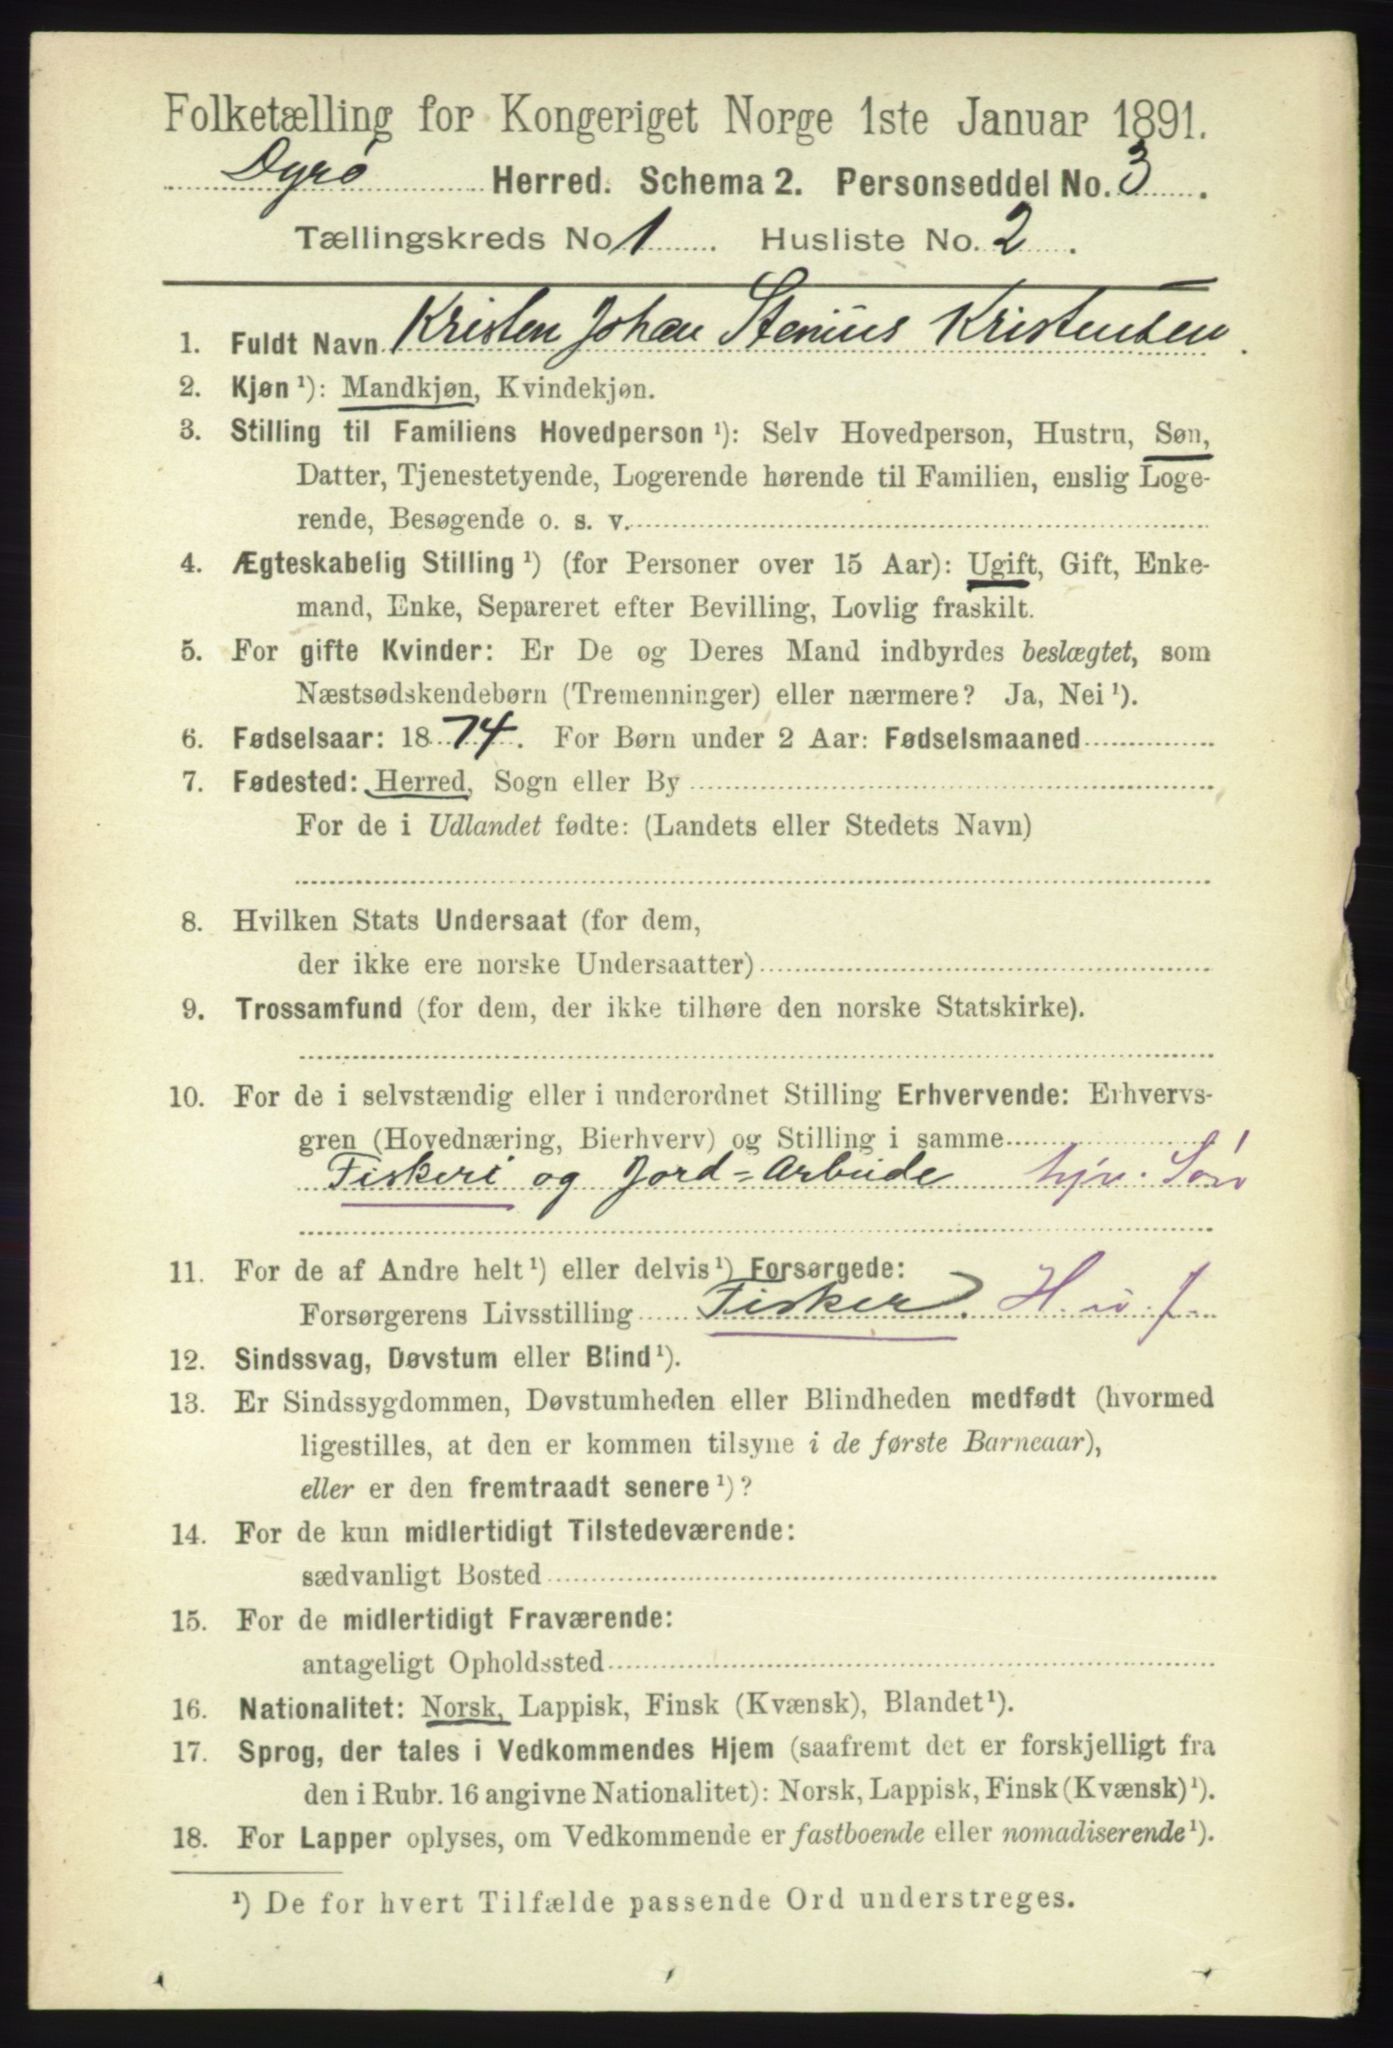 Folketælling for Kongeriget Norge 1ste Januar 1891.
Dyrø Herred. Schema 2. Personseddel No. 3.
Tællingskreds No 1. Husliste No. 2.
1. Fuldt Navn Kristen Johan Stenius Kristensen.
2. Kjøn ¹): Mandkjøn, Kvindekjøn.
3. Stilling til Familiens Hovedperson ¹): Selv Hovedperson, Hustru, Søn,
Datter, Tjenestetyende, Logerende hørende til Familien, enslig Loge-
rende, Besøgende o. s. v.
4. Ægteskabelig Stilling ¹) (for Personer over 15 Aar): Ugift, Gift, Enke-
mand, Enke, Separeret efter Bevilling, Lovlig fraskilt.
5. For gifte Kvinder: Er De og Deres Mand indbyrdes beslægtet, som
Næstsødskendebørn (Tremenninger) eller nærmere? Ja, Nei ¹).
6. Fødselsaar: 1874. For Børn under 2 Aar: Fødselsmaaned
7. Fødested: Herred, Sogn eller By
For de i Udlandet fødte: (Landets eller Stedets Navn)
8. Hvilken Stats Undersaat (for dem,
der ikke ere norske Undersaatter)
9. Trossamfund (for dem, der ikke tilhøre den norske Statskirke).
10. For de i selvstændig eller i underordnet Stilling Erhvervende: Erhvervs-
gren (Hovednæring, Bierhverv) og Stilling i samme
Fiskeri og Jord=Arbeide hjv. Søn
11. For de af Andre helt ¹) eller delvis ¹) Forsørgede:
Forsørgerens Livsstilling Fisker.
12. Sindssvag, Døvstum eller Blind ¹).
13. Er Sindssygdommen, Døvstumheden eller Blindheden medfødt (hvormed
ligestilles, at den er kommen tilsyne i de første Barneaar),
eller er den fremtraadt senere ¹)?
14. For de kun midlertidigt Tilstedeværende:
sædvanligt Bosted
15. For de midlertidigt Fraværende:
antageligt Opholdssted
16. Nationalitet: Norsk, Lappisk, Finsk (Kvænsk), Blandet ¹).
17. Sprog, der tales i Vedkommendes Hjem (saafremt det er forskjelligt fra
den i Rubr. 16 angivne Nationalitet): Norsk, Lappisk, Finsk (Kvænsk) ¹).
18. For Lapper oplyses, om Vedkommende er fastboende eller nomadiserende ¹).
¹) De for hvert Tilfælde passende Ord understreges.